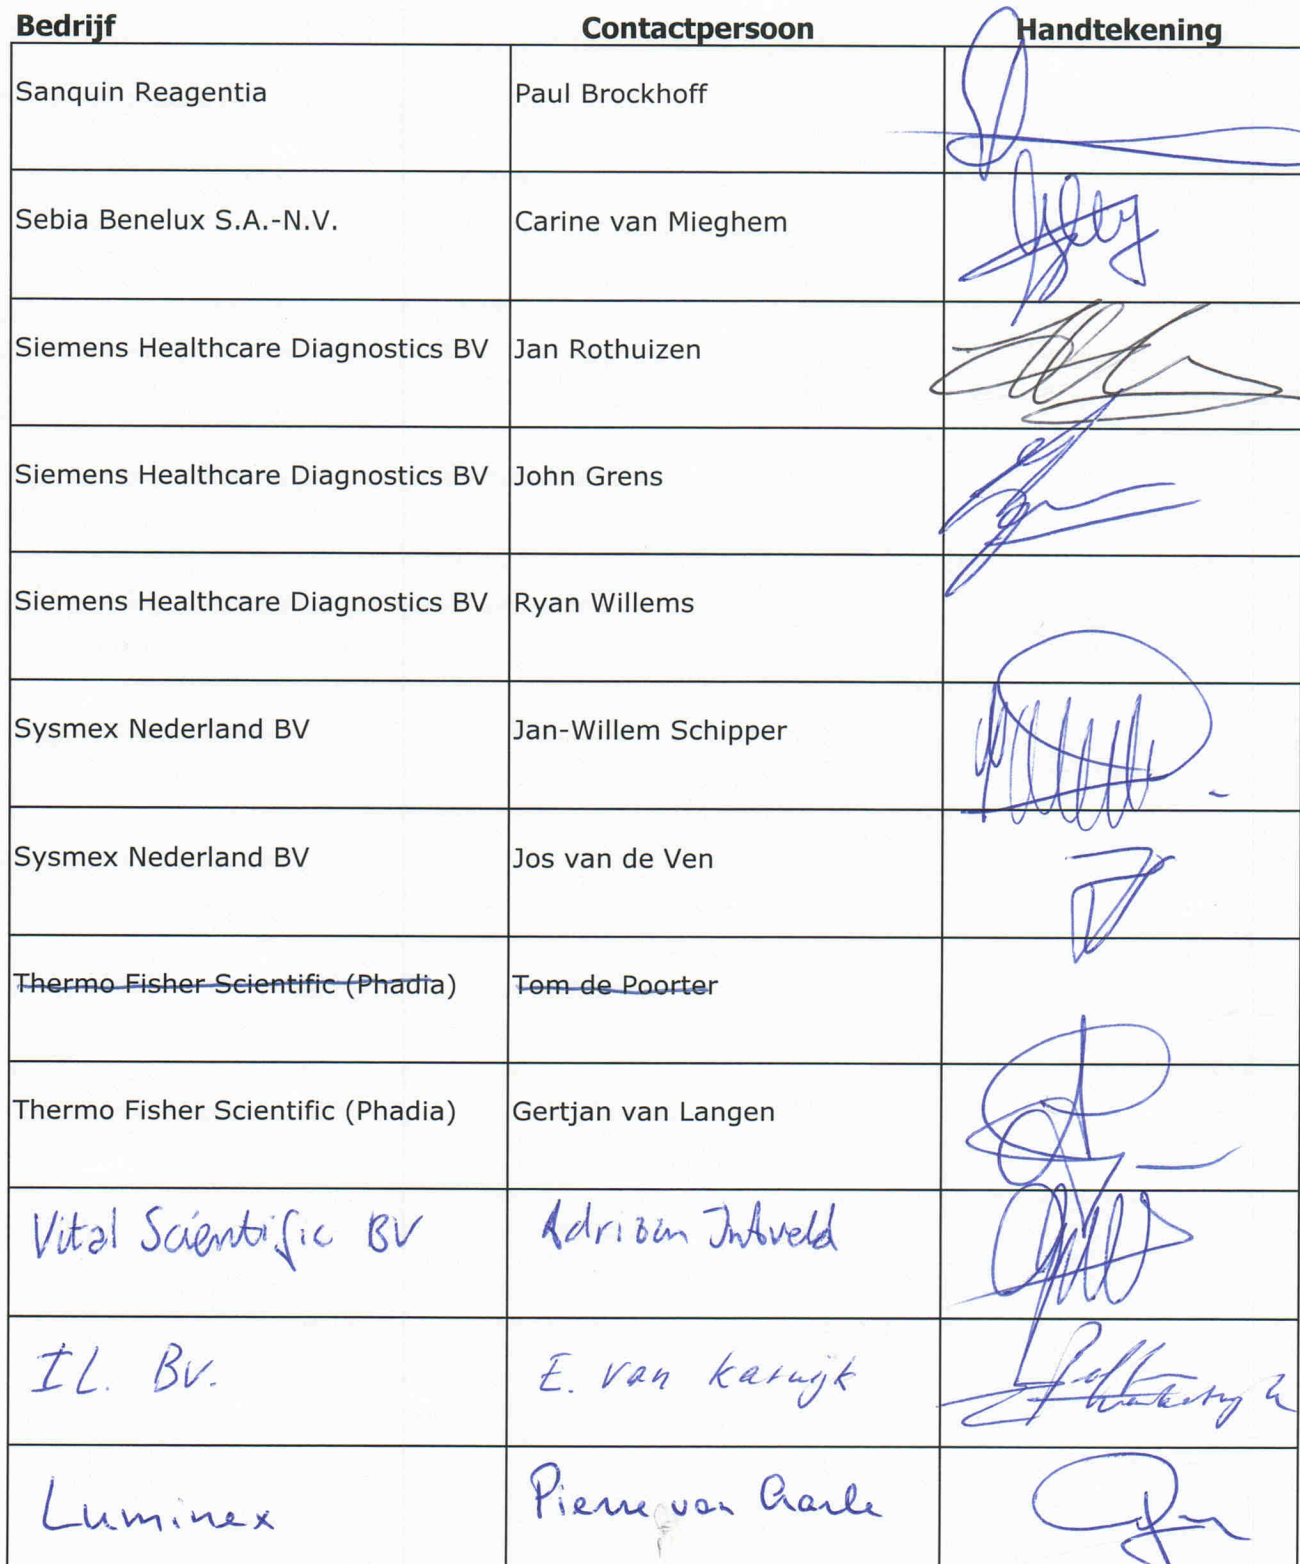 Bedrijf Contactpersoon Handtekening
Sanquin Reagentia Paul Brockhoff
Sebia Benelux S.A.-N.V. Carine van Mieghem
Siemens Healthcare Diagnostics BV Jan Rothuizen
Siemens Healthcare Diagnostics BV John Grens
Siemens Healthcare Diagnostics BV Ryan Willems
Sysmex Nederland BV Jan-Willem Schipper
Sysmex Nederland BV Jos van de Ven
Thermo Fisher Scientific (Phadia) Tom de Poorter
Thermo Fisher Scientific (Phadia) Gertjan van Langen
Vital Scientific BV Adriaan
IL. BV. E. van
Luminex Pierre van